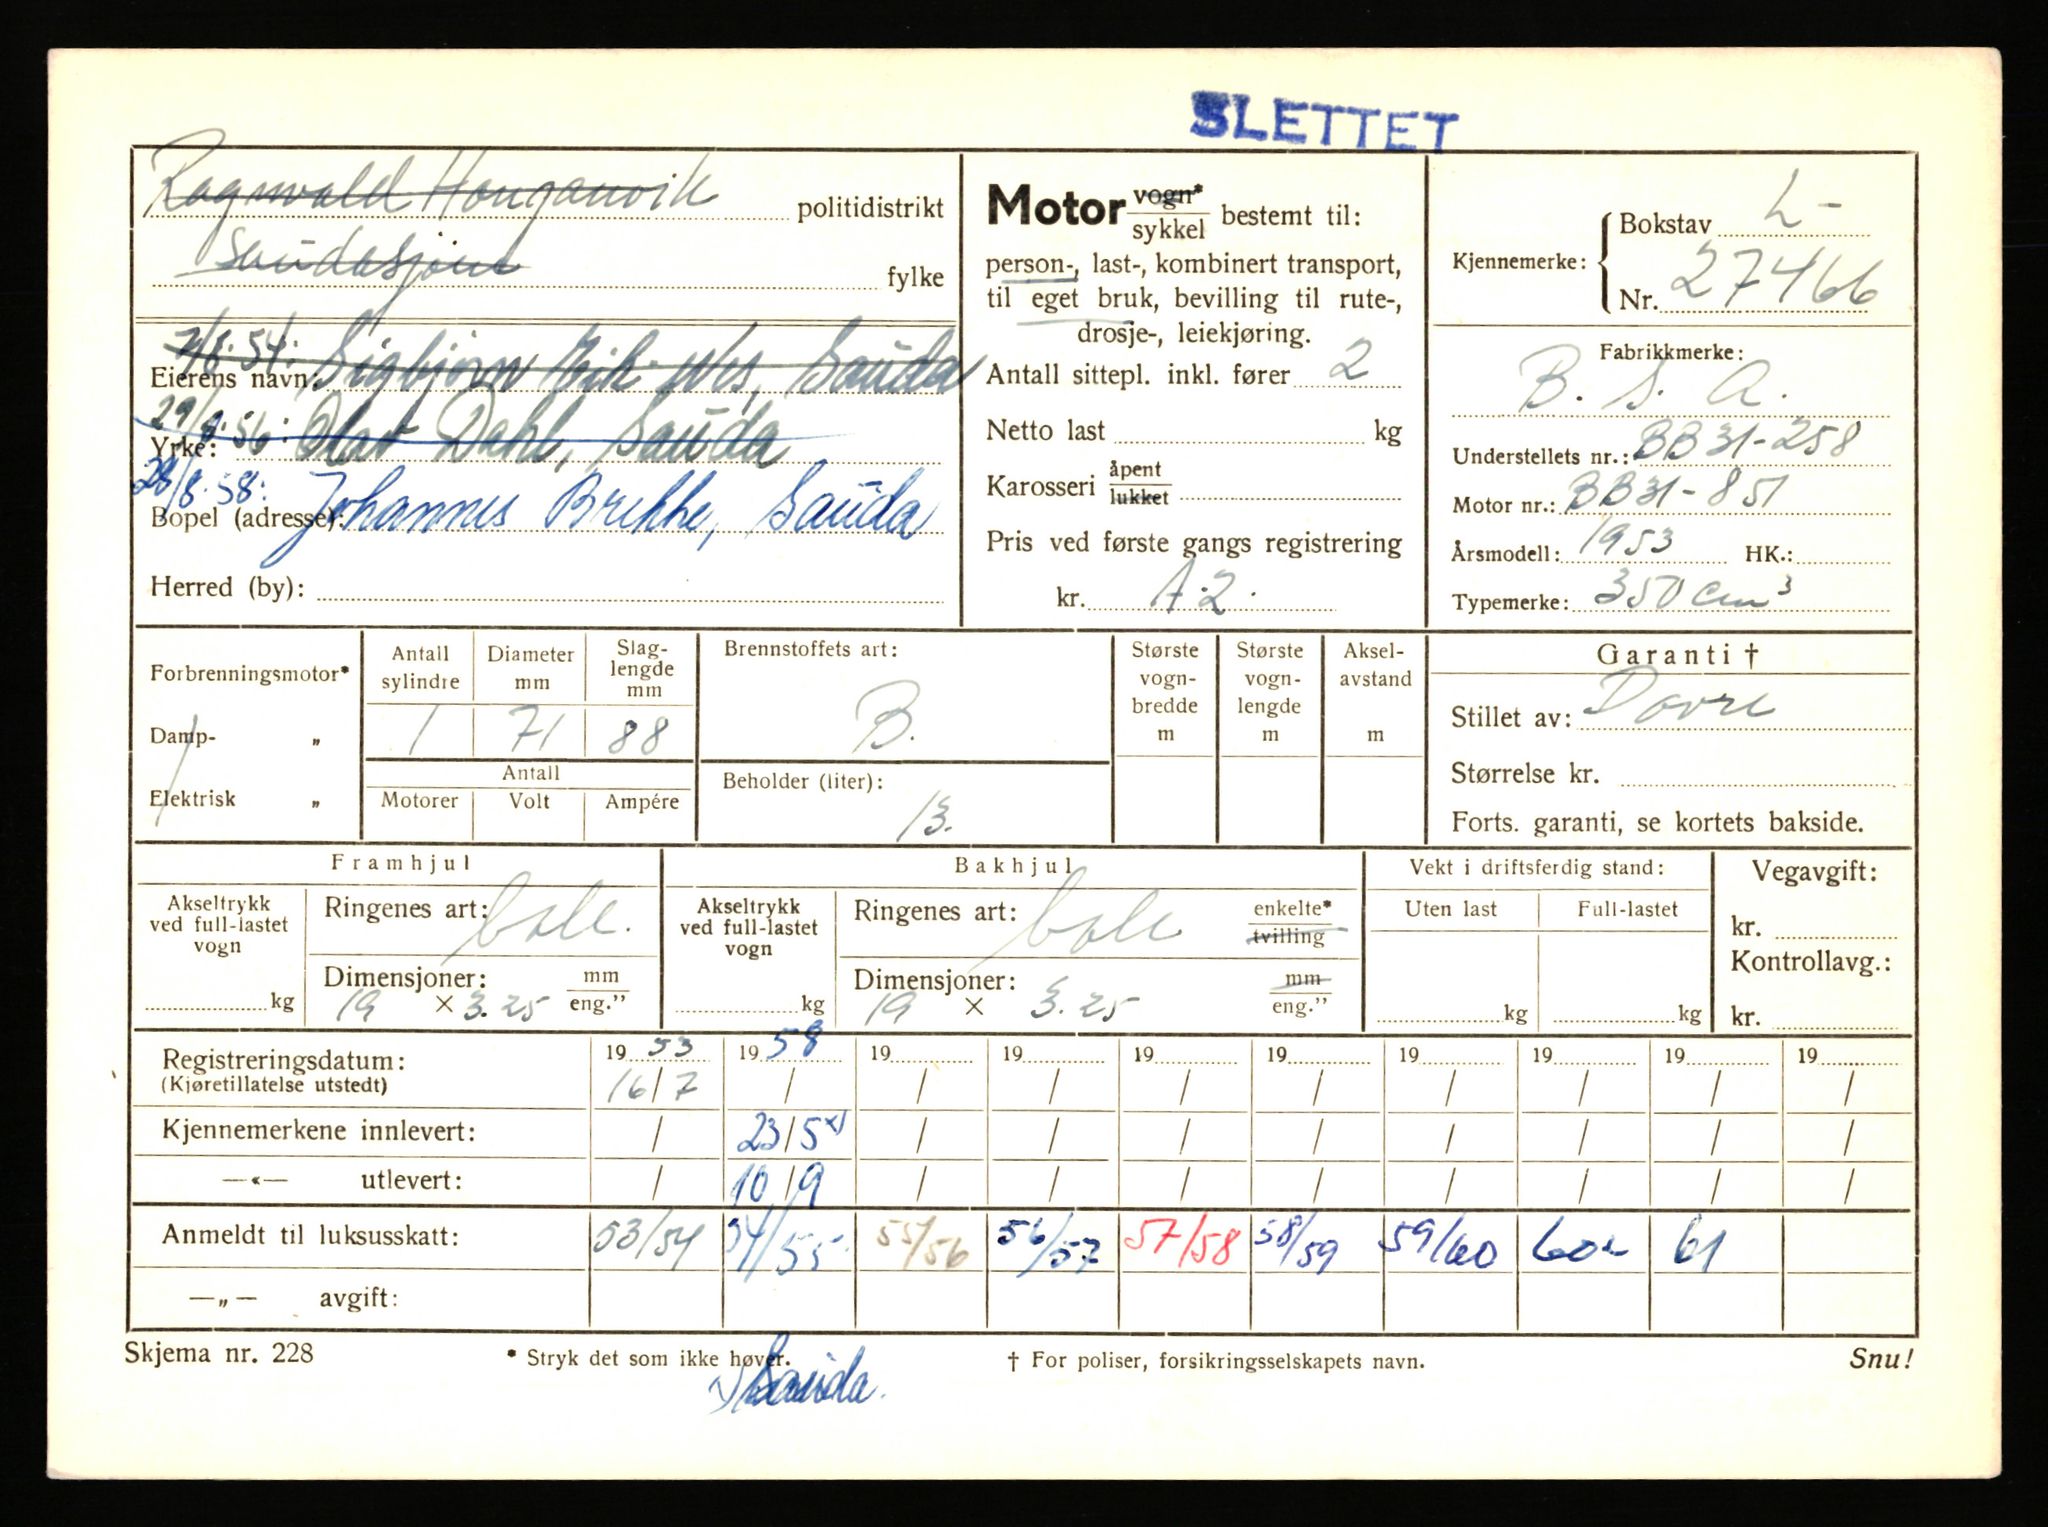 SLETTET
Ragnvald Honganvik politidistrikt
Saudasjøen fylke
Motor vogn* / sykkel bestemt til:
person-, last-, kombinert transport,
til eget bruk, bevilling til rute-,
drosje-, leiekjøring.
Antall sittepl. inkl. fører 2
Netto last kg
Karosseri åpent / lukket
Pris ved første gangs registrering
kr. A.2.
Kjennemerke: Bokstav L-
Nr. 27466
Fabrikkmerke:
B. S. A.
Understellets nr.: BB31-258
Motor nr.: BB31-851
Årsmodell: 1953 HK.:
Typemerke: 350 cm³
54: Sigbjørn Sauda
Eierens navn:
29/ 56: Olav Dahl, Sauda
Yrke:
28/8.58: Johannes Brekke, Sauda
Bopel (adresse):
Herred (by):
Forbrenningsmotor*
Damp- „
Elektrisk „
Antall sylindre
Diameter mm
Slaglengde mm
1 71 88
Antall
Motorer Volt Ampére
Brennstoffets art:
B.
Beholder (liter):
13.
Største vognbredde m
Største vognlengde m
Akselavstand m
Garanti †
Stillet av: Dovre
Størrelse kr.
Forts. garanti, se kortets bakside.
Framhjul
Akseltrykk ved full-lastet vogn
kg
Ringenes art:
Dimensjoner: mm / eng.”
19 × 3.25
Bakhjul
Akseltrykk ved full-lastet vogn
kg
Ringenes art: enkelte* / tvilling
Dimensjoner: mm / eng.”
19 × 3.25
Vekt i driftsferdig stand:
Uten last Full-lastet
kg kg
Vegavgift:
kr.
Kontrollavg.:
kr.
Registreringsdatum: 19 53 19 58 19 19 19 19 19 19 19 19
(Kjøretillatelse utstedt) 16/7 / / / / / / / / /
Kjennemerkene innlevert: / 23/5 x) / / / / / / / /
—«— utlevert: / 10/9 / / / / / / / /
Anmeldt til luksusskatt: 53/54 54/55 55/56 56/57 57/58 58/59 59/60 60 61
—„— avgift:
Skjema nr. 228 * Stryk det som ikke høver. † For poliser, forsikringsselskapets navn. Snu!
x) Sauda.